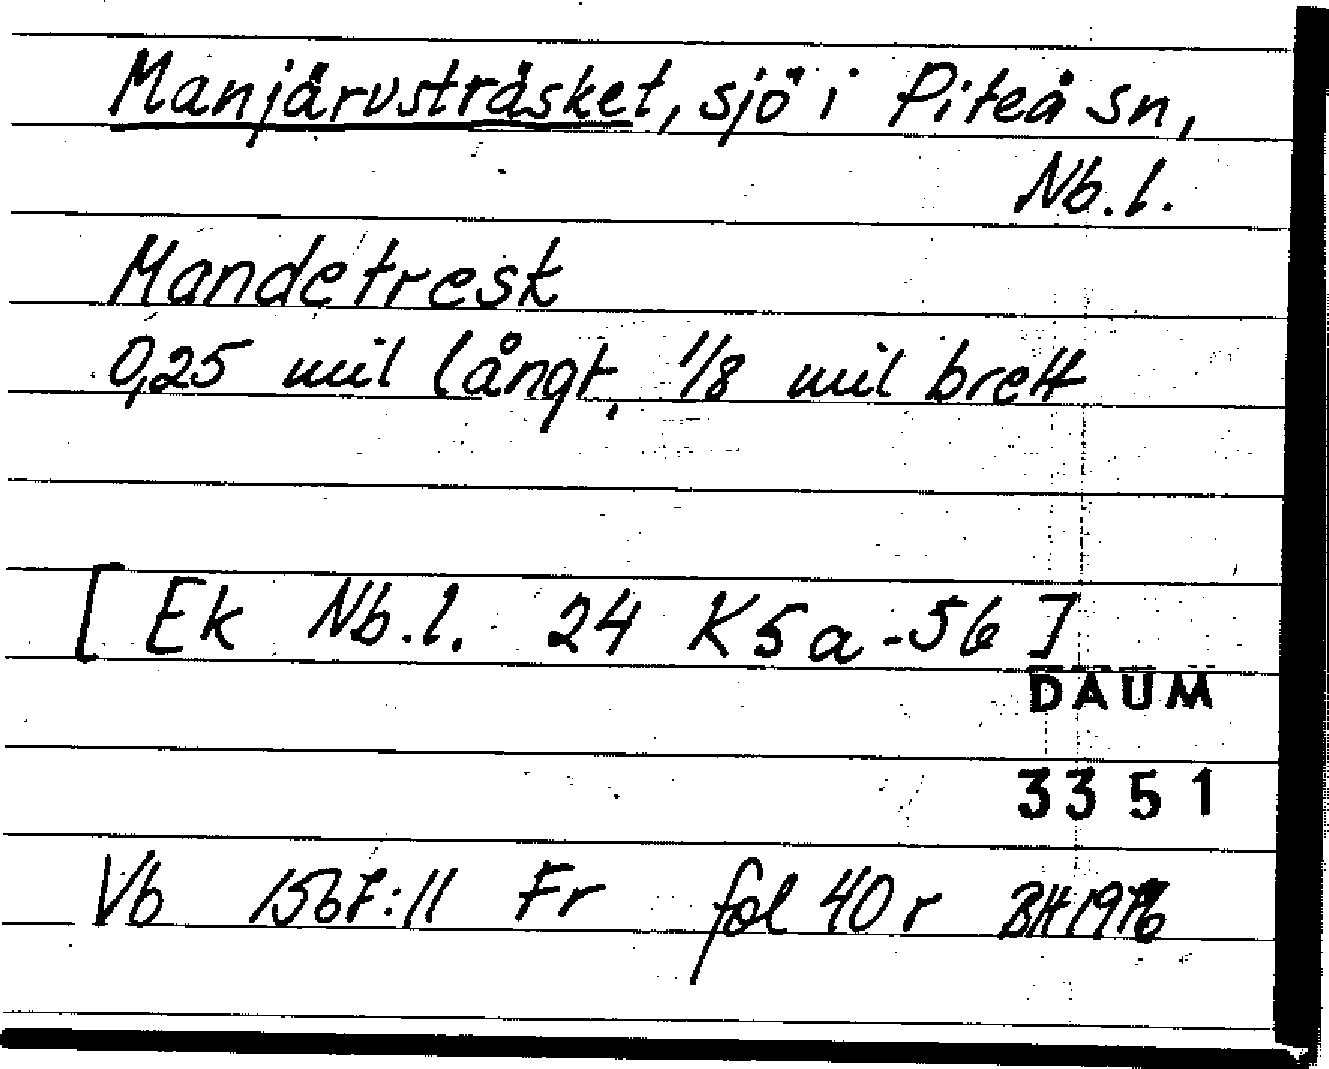 Manjärvsträsket, sjö i Piteå sn,
Nb.l.
Mandetresk
0,25 mil långt, 1/8 mil brett
[ Ek Nb.l. 24 K5a-56 ]
DAUM
3351
Vb 1567:11 Fr fol 40 r BH 1976